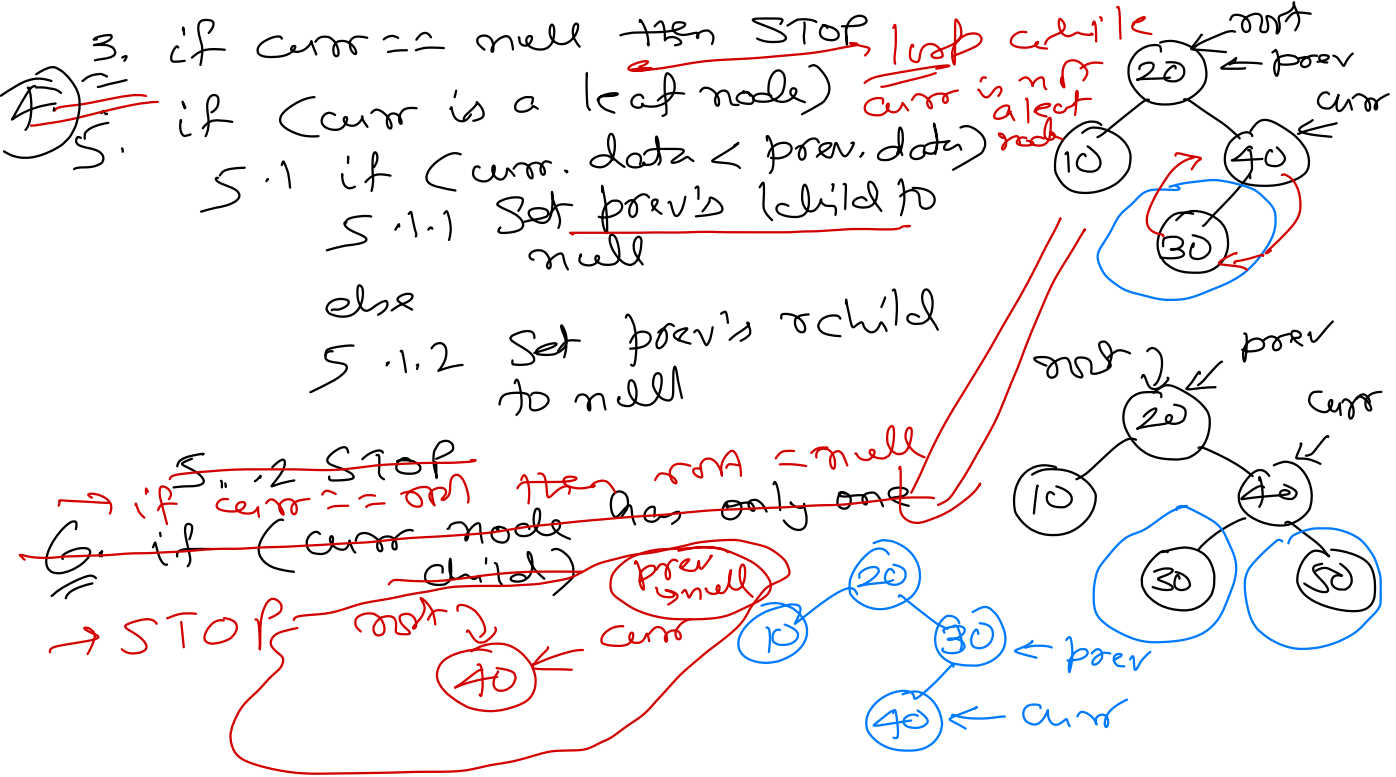 3. if curr == null then STOP
loop while
curr is not
a leaf
node
4.
5. if (curr is a leaf node)
5.1 if (curr.data < prev.data)
5.1.1 Set prev's lchild to
null
else
5.1.2 Set prev's rchild
to null
5.2 STOP
→ if curr == root then root = null
6. if (curr node has only one
child)
→ STOP
prev
→null
root
curr
40
root
prev
20
curr
10
40
30
root
prev
20
curr
10
40
30
50
20
10
30
← prev
40
← curr